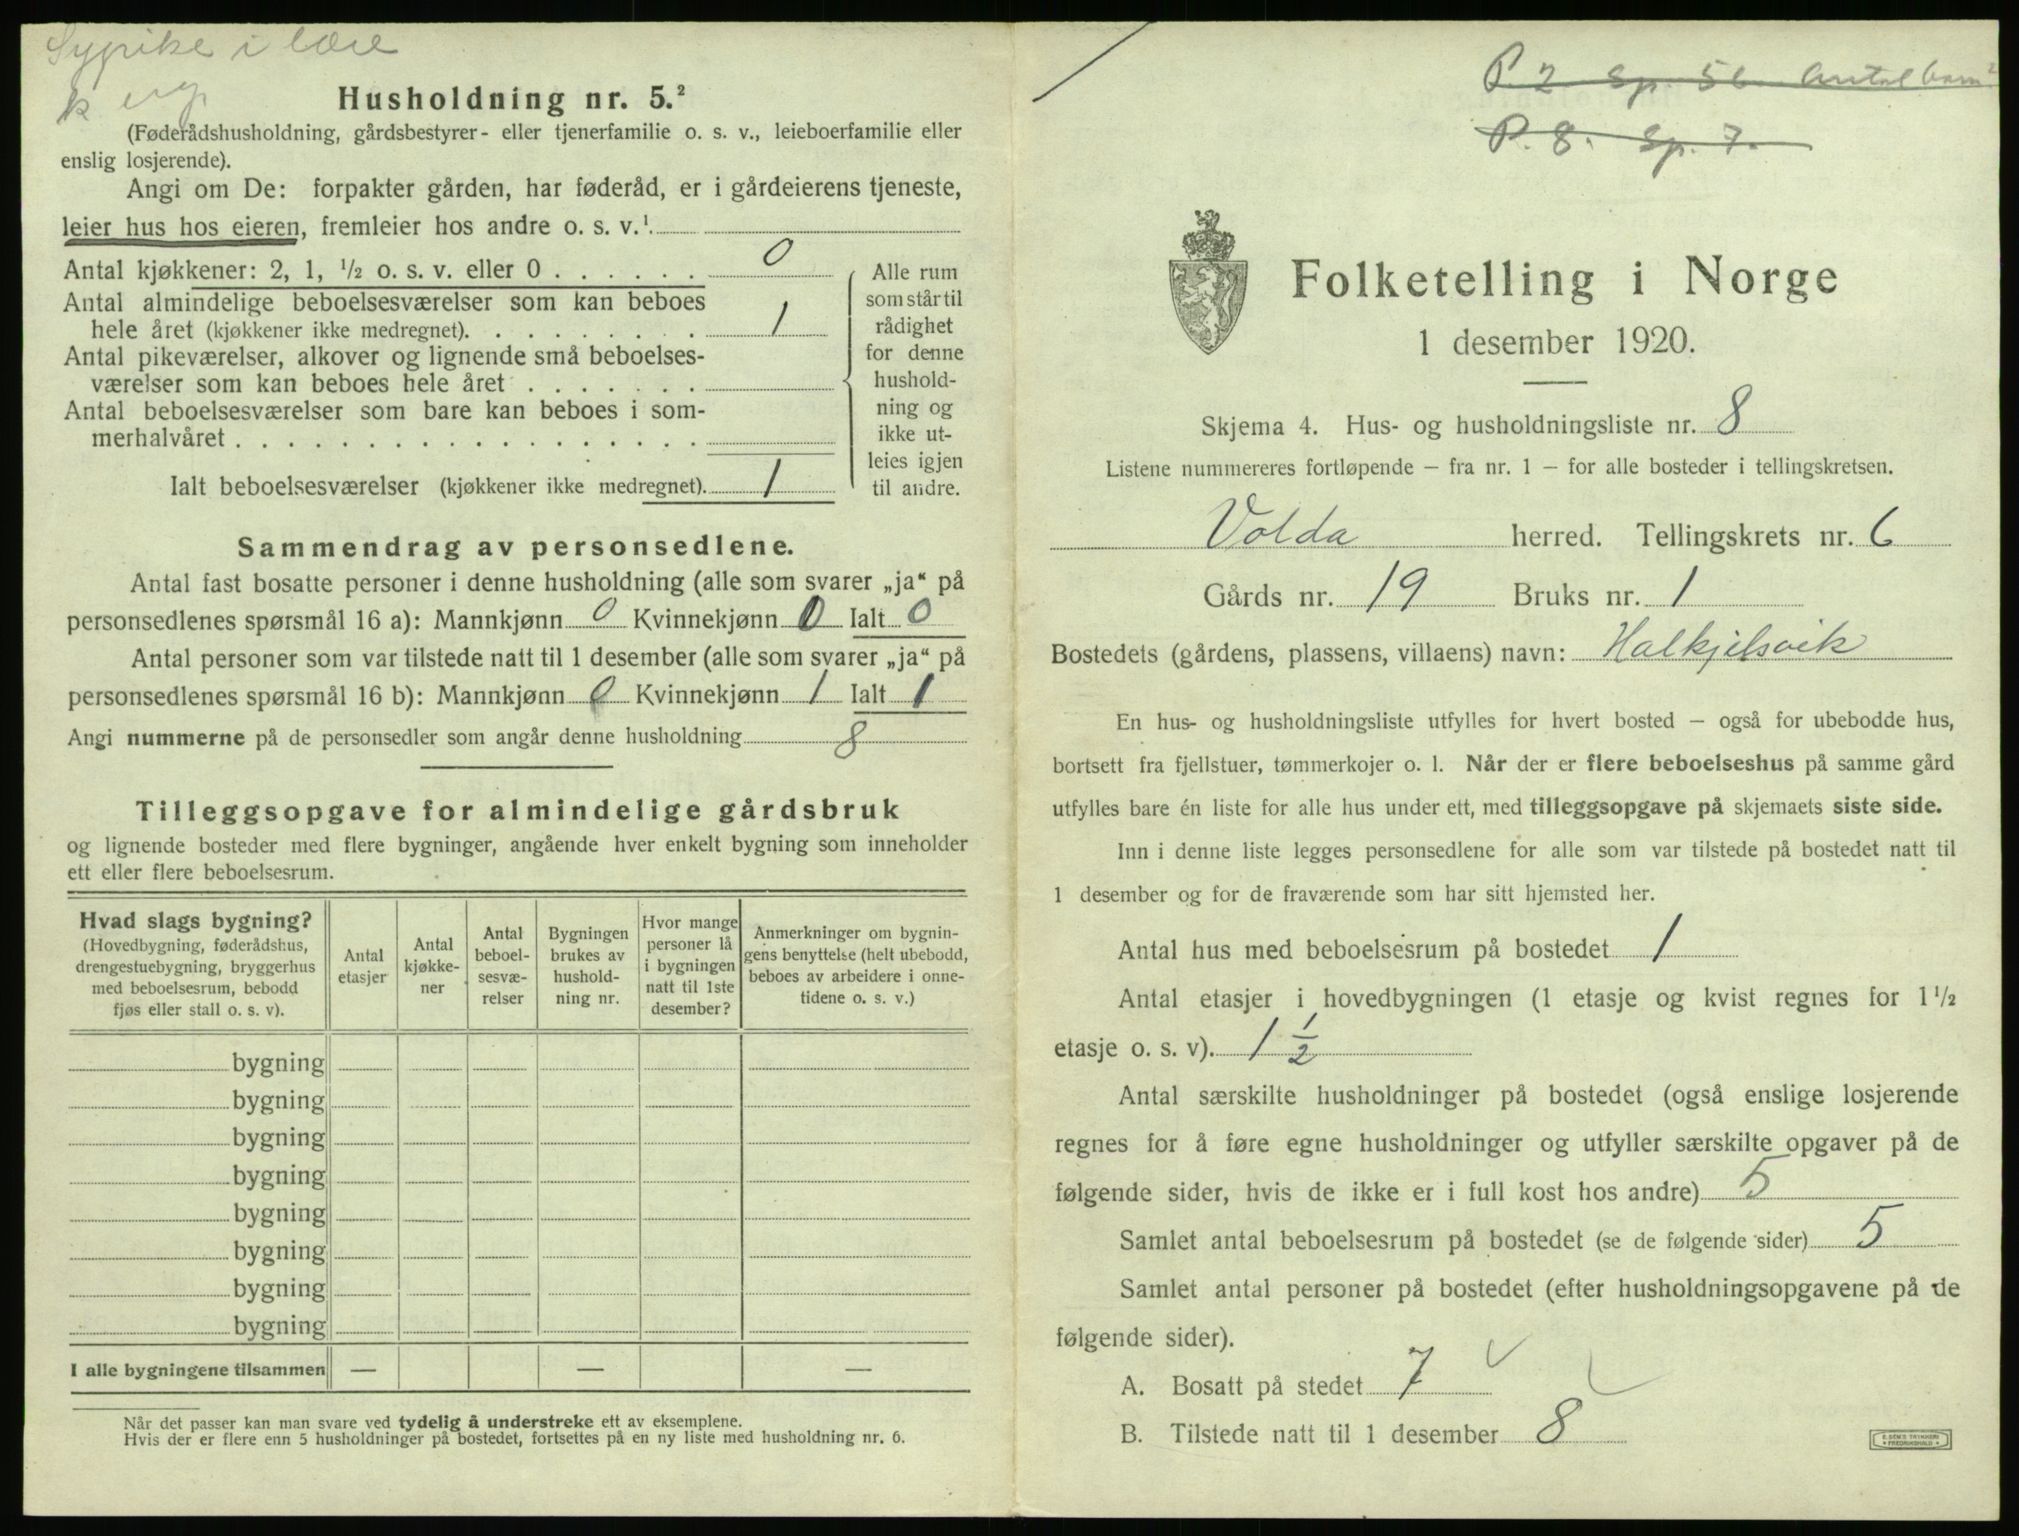 Sypike i lære
Husholdning nr. 5.²
(Føderådshusholdning, gårdsbestyrer- eller tjenerfamilie o. s. v., leieboerfamilie eller
enslig losjerende).
Angi om De: forpakter gården, har føderåd, er i gårdeierens tjeneste,
leier hus hos eieren, fremleier hos andre o. s. v.¹
Antal kjøkkener: 2, 1, ½ o. s. v. eller 0 . . . . . . 0
Antal almindelige beboelsesværelser som kan beboes
hele året (kjøkkener ikke medregnet). . . . . . . . . 1
Antal pikeværelser, alkover og lignende små beboelses-
værelser som kan beboes hele året . . . . . . .
Antal beboelsesværelser som bare kan beboes i som-
merhalvåret . . . . . . . . . . . . . . . . . .
Ialt beboelsesværelser (kjøkkener ikke medregnet). 1
Alle rum
som står til
rådighet
for denne
hushold-
ning og
ikke ut-
leies igjen
til andre.
Sammendrag av personsedlene.
Antal fast bosatte personer i denne husholdning (alle som svarer „ja“ på
personsedlenes spørsmål 16 a): Mannkjønn 0 Kvinnekjønn 0 Ialt 0
Antal personer som var tilstede natt til 1 desember (alle som svarer „ja“ på
personsedlenes spørsmål 16 b): Mannkjønn 0 Kvinnekjønn 1 Ialt 1
Angi nummerne på de personsedler som angår denne husholdning 8
Tilleggsopgave for almindelige gårdsbruk
og lignende bosteder med flere bygninger, angående hver enkelt bygning som inneholder
ett eller flere beboelsesrum.
Hvad slags bygning?
(Hovedbygning, føderådshus,
drengestuebygning, bryggerhus
med beboelsesrum, bebodd
fjøs eller stall o. s. v).
Antal
etasjer
Antal
kjøkke-
ner
Antal
beboel-
sesvæ-
relser
Bygningen
brukes av
hushold-
ning nr.
Hvor mange
personer lå
i bygningen
natt til 1ste
desember?
Anmerkninger om bygnin-
gens benyttelse (helt ubebodd,
beboes av arbeidere i onne-
tidene o. s. v.)
bygning
bygning
bygning
bygning
bygning
bygning
bygning
bygning
I alle bygningene tilsammen — — —
Når det passer kan man svare ved tydelig å understreke ett av eksemplene.
Hvis der er flere enn 5 husholdninger på bostedet, fortsettes på en ny liste med husholdning nr. 6.
P. 2 Sp. 5b. Antal barn
P. 8. Sp. 7.
Folketelling i Norge
1 desember 1920.
Skjema 4. Hus- og husholdningsliste nr. 8
Listene nummereres fortløpende – fra nr. 1 – for alle bosteder i tellingskretsen.
Volda herred. Tellingskrets nr. 6
Gårds nr. 19 Bruks nr. 1
Bostedets (gårdens, plassens, villaens) navn: Halkjelsvik
En hus- og husholdningsliste utfylles for hvert bosted – også for ubebodde hus,
bortsett fra fjellstuer, tømmerkojer o. l. Når der er flere beboelseshus på samme gård
utfylles bare én liste for alle hus under ett, med tilleggsopgave på skjemaets siste side.
Inn i denne liste legges personsedlene for alle som var tilstede på bostedet natt til
1 desember og for de fraværende som har sitt hjemsted her.
Antal hus med beboelsesrum på bostedet 1
Antal etasjer i hovedbygningen (1 etasje og kvist regnes for 1½
etasje o. s. v). 1 ½
Antal særskilte husholdninger på bostedet (også enslige losjerende
regnes for å føre egne husholdninger og utfyller særskilte opgaver på de
følgende sider, hvis de ikke er i full kost hos andre) 5
Samlet antal beboelsesrum på bostedet (se de følgende sider) 5
Samlet antal personer på bostedet (efter husholdningsopgavene på de
følgende sider).
A. Bosatt på stedet 7
B. Tilstede natt til 1 desember 8
E. SEM'S TRYKKERI
FREDRIKSHALD